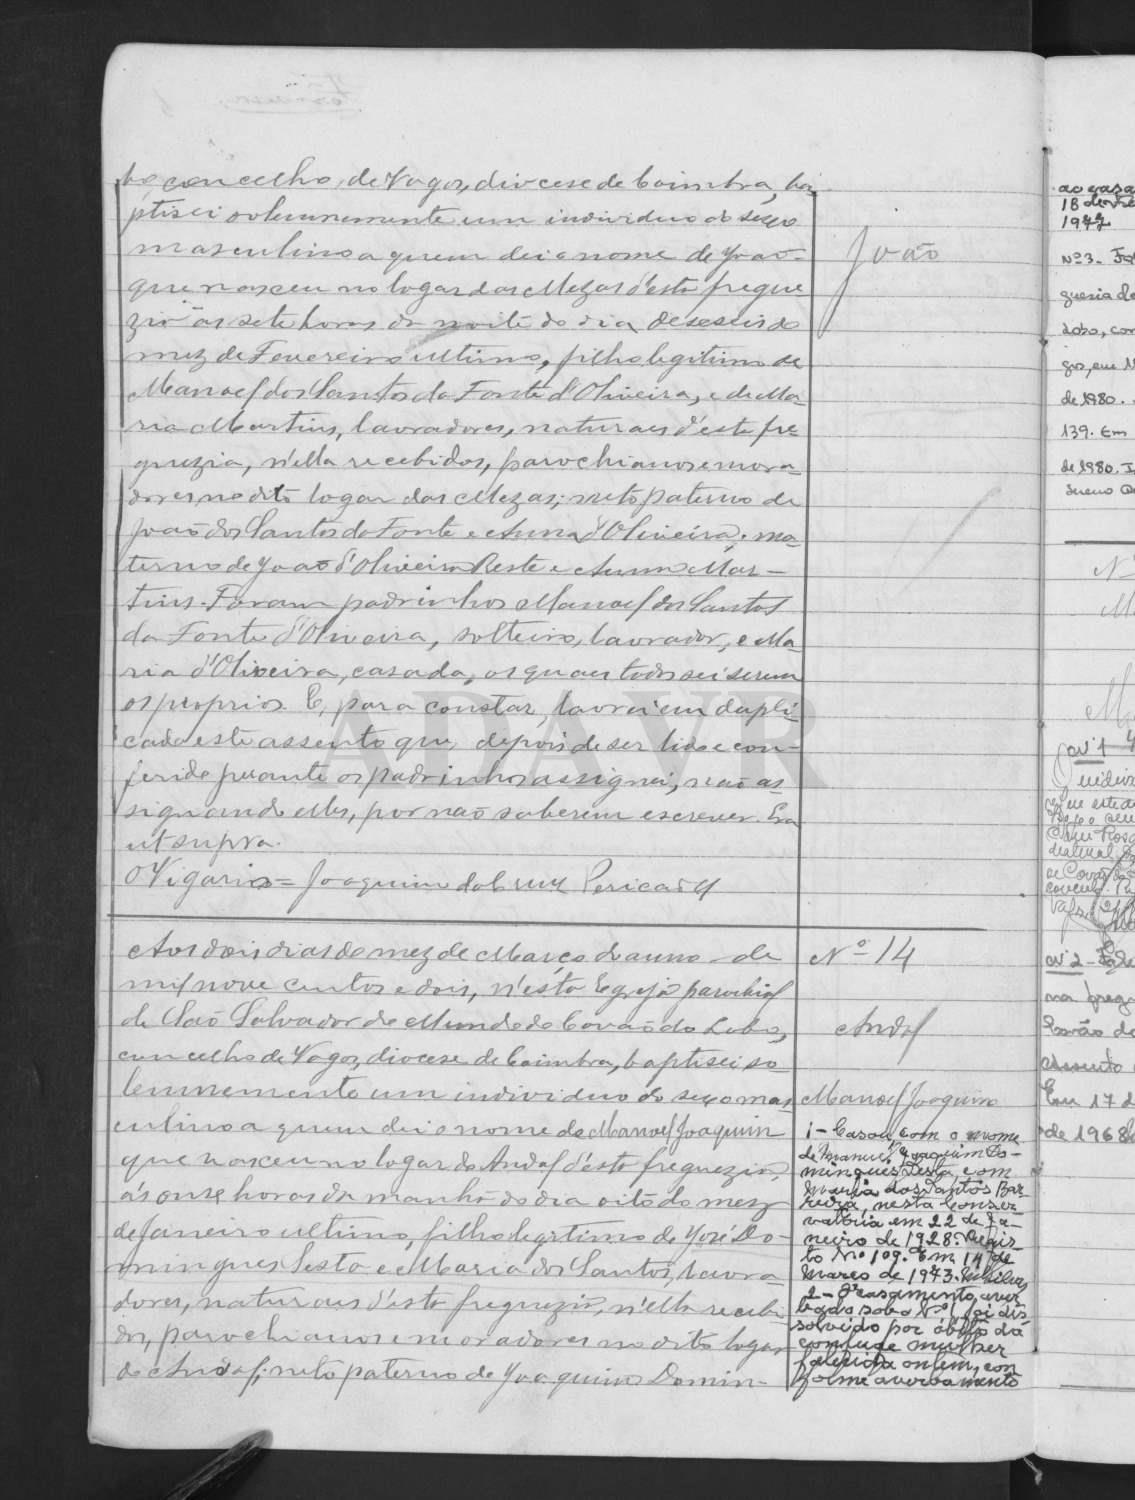 bo, concelho de Vagos, diocese de Coimbra, ba-
ptisei solemnemente um individuo do sexo
masculino a quem dei o nome de João
que nasceu no logar das Mezas d'esta fregue
zia ás sete horas da noite do dia deseseis do
mez de Fevereiro ultimo, filho legitimo de
Manoel dos Santos da Fonte d'Oliveira, e de Ma-
ria Martins, lavradores, naturaes d'esta fre-
guezia, n'ella recebidos, parochianos e mora-
dores no dito logar das Mezas; neto paterno de
João dos Santos da Fonte e Anna d'Oliveira, ma-
terno de João d'Oliveira Reste e Anna Mar-
tins. Foram padrinhos Manoel dos Santos
da Fonte d'Oliveira, solteiro, lavrador, e Ma-
ria d'Oliveira, casada, os quaes todos sei serem
os proprios. E, para constar, lavrei em dupli-
cado este assento que, depois de ser lido e con-
ferido perante os padrinhos assignei, não as-
signando elles, por não saberem escrever. Era
ut supra.
O Vigario = Joaquim da Cruz Pericão
João
Aos dois dias do mez de Março do anno de
mil nove centos e dois, n'esta Egreja parochial
de São Salvador do Mundo do Covão do Lobo,
concelho de Vagos, diocese de Coimbra, baptisei so-
lemnemente um individuo do sexo mas-
culino a quem dei o nome de Manoel Joaquim
que nasceu no logar do Andal d'esta freguezia,
ás onse horas da manhã do dia oito do mez
de Janeiro ultimo, filho legitimo de José Do-
mingues Sesta e Maria dos Santos, lavra-
dores, naturaes d'esta freguezia, n'ella recebi-
dos, parochianos e moradores no dito logar
do Andal; neto paterno de Joaquim Domin-
Nº 14
Andal
Manoel Joaquim
1- Casou com o nome
de Manuel Joaquim Do-
mingues Sesta, com
Maria dos Santos Bar-
reira, nesta Conser-
vatória em 22 de Ja-
neiro de 1928. Regis-
to Nº 109. Em 14 de
Março de 1973.
2- O casamento aver-
bado sob o Nº 1 foi dis-
solvido por óbito da
conjuge mulher
falecida ontem, con
forme averbamento
ao casa
18 de
1977
Nº 3-
guesia de
Lobo, con
gos, em
de 1980.
139. Em
de 1980.
Nº
Nº 1
Nº 2-
na freg
Covão do
Assento
Em 17 d
de 1968
ADAVR